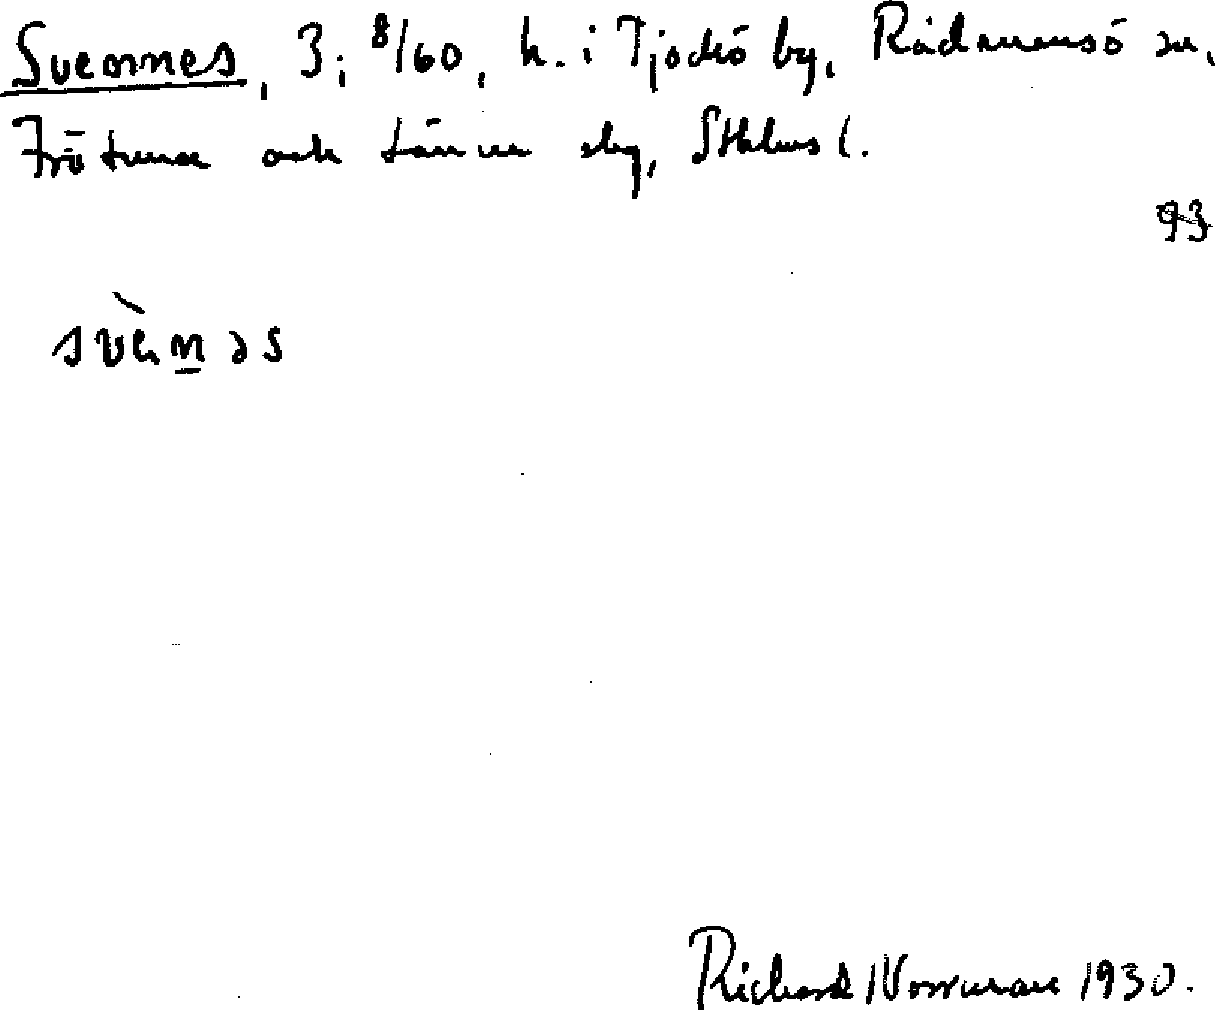 Svennes, 3; 8/60, h. i Tjockö by, Rådmansö sn,
Frötuna och Länna skg, Sthlms l.
93
svènəs
Richard Norrman 1930.